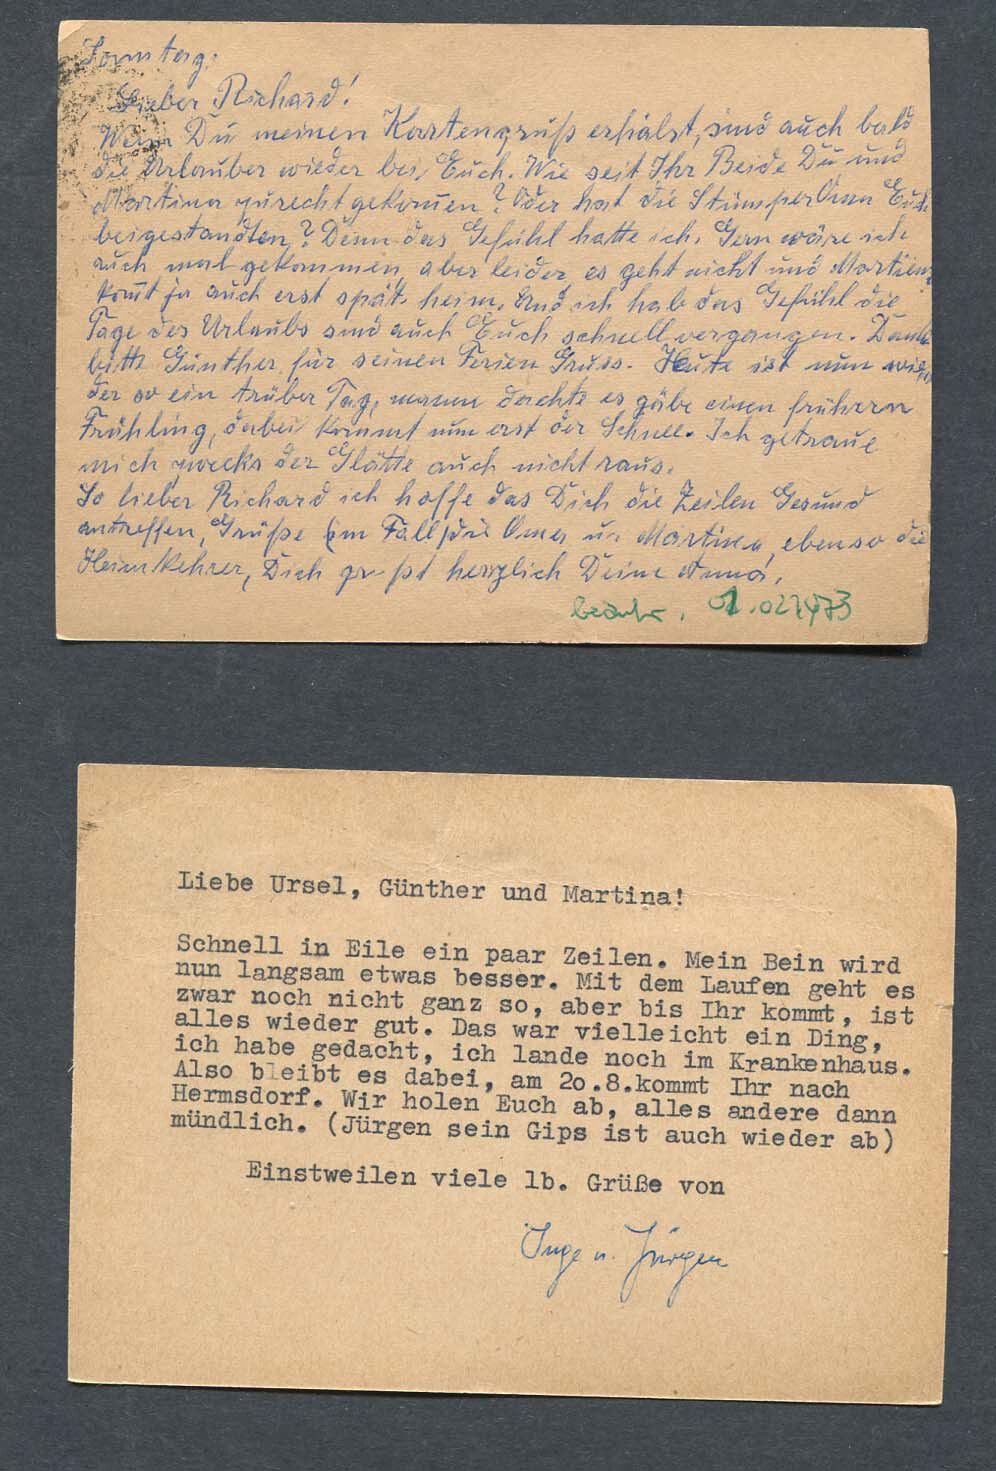 Sonntag:
Lieber Richard!
Wenn Du meinen Kartengruß erhälst, sind auch bald
die Urlauber wieder bei Euch. Wie seit Ihr Beide Du und
Martina zurecht gekomen? Oder hat die Oma Euch
beigestandten? Denn das Gefühl hatte ich. Gern wäre ich
auch mal gekommen, aber leider es geht nicht und
komt ja auch erst spät heim. Und ich hab das Gefühl die
Tage des Urlaubs sind auch Euch schnell vergangen. Dank
bitte Günther für seinen Ferien Gruss. Heute ist nun wie
der so ein trüber Tag, mann dachte es gäbe einen frühern
Frühling, dabei kommt nun erst der Schnee. Ich getraue
mich zwecks der Glätte auch nicht raus.
So lieber Richard ich hoffe das Dich die Zeilen Gesund
antreffen, Grüße im Fall die Oma u. Martina, ebenso die
Heimkehrer, Dich herzlich Deine Anna.
Liebe Ursel, Günther und Martina!
Schnell in Eile ein paar Zeilen. Mein Bein wird
nun langsam etwas besser. Mit dem Laufen geht es
zwar noch nicht ganz so, aber bis Ihr kommt, ist
alles wieder gut. Das war vielleicht ein Ding,
ich habe gedacht, ich lande noch im Krankenhaus.
Also bleibt es dabei, am 2o.8.kommt Ihr nach
Hermsdorf. Wir holen Euch ab, alles andere dann
mündlich. (Jürgen sein Gips ist auch wieder ab)
Einstweilen viele lb. Grüße von
Inge u. Jürgen